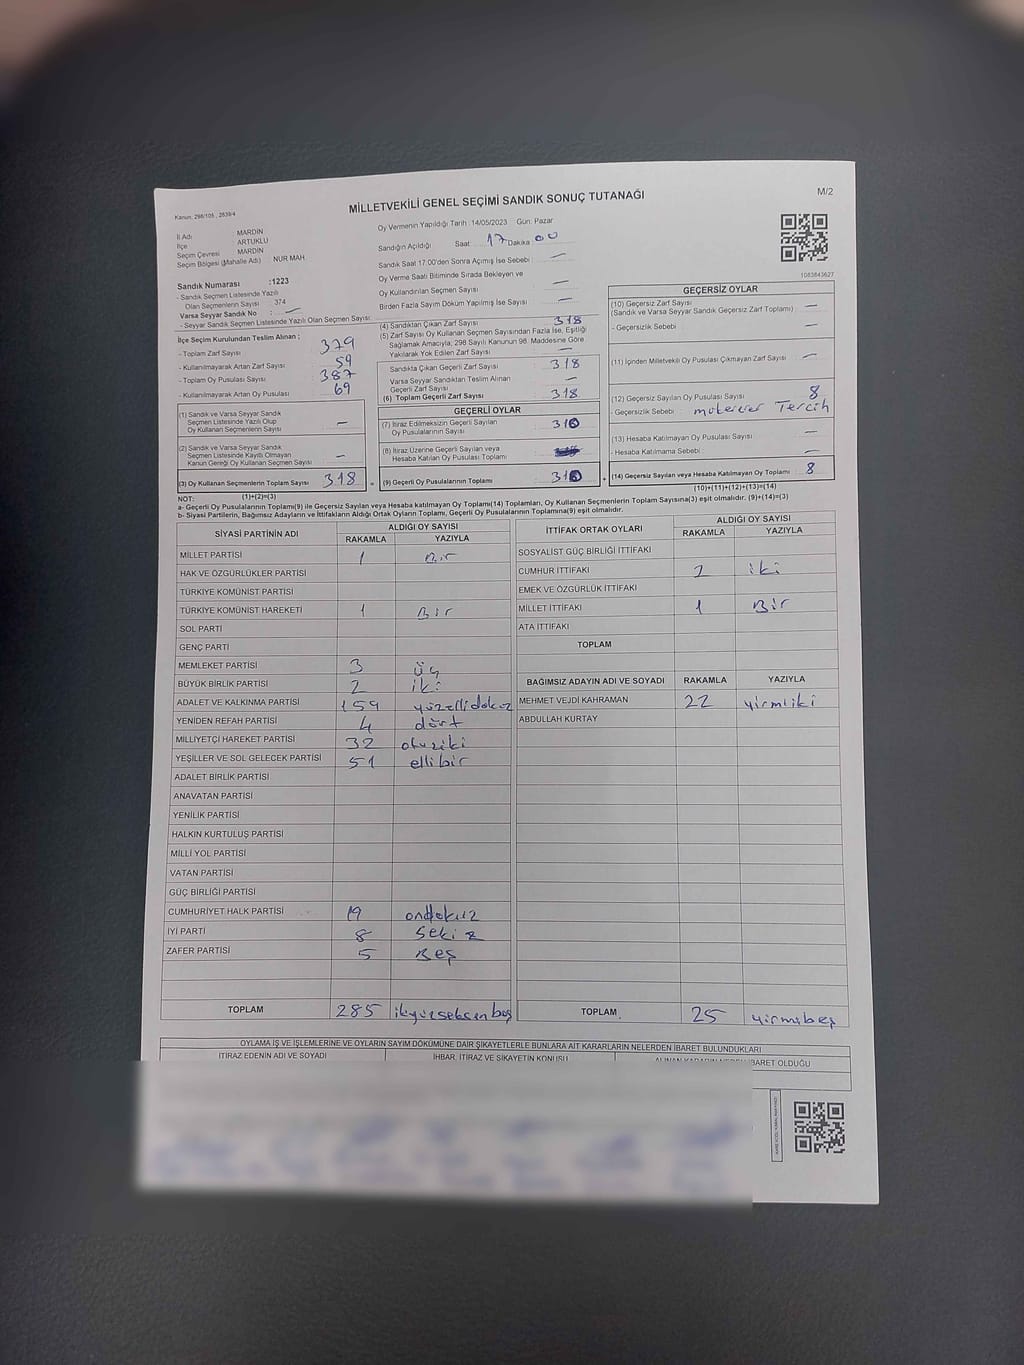 MİLLETVEKİLİ GENEL SEÇİMİ SANDIK SONUÇ TUTANAĞI
M/2
Kanun, 298/105 , 2839/4
İl Adı : MARDİN
İlçe : ARTUKLU
Seçim Çevresi : MARDİN
Seçim Bölgesi (Mahalle Adı) : NUR MAH.
Sandık Numarası :1223
- Sandık Seçmen Listesinde Yazılı
Olan Seçmenlerin Sayısı : 374
Varsa Seyyar Sandık No : —
- Seyyar Sandık Seçmen Listesinde Yazılı Olan Seçmen Sayısı:
Oy Vermenin Yapıldığı Tarih :14/05/2023 Gün: Pazar
Sandığın Açıldığı Saat 17 Dakika 00
Sandık Saat 17:00'den Sonra Açımış İse Sebebi : —
Oy Verme Saati Bitiminde Sırada Bekleyen ve
Oy Kullandırılan Seçmen Sayısı —
Birden Fazla Sayım Döküm Yapılmış İse Sayısı —
1083843627
İlçe Seçim Kurulundan Teslim Alınan ;
- Toplam Zarf Sayısı 379
- Kullanılmayarak Artan Zarf Sayısı 59
- Toplam Oy Pusulası Sayısı 387
- Kullanılmayarak Artan Oy Pusulası 69
(1) Sandık ve Varsa Seyyar Sandık
Seçmen Listesinde Yazılı Olup
Oy Kullanan Seçmenlerin Sayısı —
(2) Sandık ve Varsa Seyyar Sandık
Seçmen Listesinde Kayıtlı Olmayan
Kanun Gereği Oy Kullanan Seçmen Sayısı —
(3) Oy Kullanan Seçmenlerin Toplam Sayısı 318
(1)+(2)=(3)
(4) Sandıktan Çıkan Zarf Sayısı 318
(5) Zarf Sayısı Oy Kullanan Seçmen Sayısından Fazla İse, Eşitliği
Sağlamak Amacıyla, 298 Sayılı Kanunun 98. Maddesine Göre
Yakılarak Yok Edilen Zarf Sayısı —
Sandıkta Çıkan Geçerli Zarf Sayısı 318
Varsa Seyyar Sandıktan Teslim Alınan
Geçerli Zarf Sayısı —
(6) Toplam Geçerli Zarf Sayısı 318
GEÇERLİ OYLAR
(7) İtiraz Edilmeksizin Geçerli Sayılan
Oy Pusulalarının Sayısı 310
(8) İtiraz Üzerine Geçerli Sayılan veya
Hesaba Katılan Oy Pusulası Toplamı
(9) Geçerli Oy Pusulalarının Toplamı 310
GEÇERSİZ OYLAR
(10) Geçersiz Zarf Sayısı
(Sandık ve Varsa Seyyar Sandık Geçersiz Zarf Toplamı) —
- Geçersizlik Sebebi : —
(11) İçinden Milletvekili Oy Pusulası Çıkmayan Zarf Sayısı —
(12) Geçersiz Sayılan Oy Pusulası Sayısı 8
- Geçersizlik Sebebi : mükerrer Tercih
(13) Hesaba Katılmayan Oy Pusulası Sayısı —
- Hesaba Katılmama Sebebi : —
(14) Geçersiz Sayılan veya Hesaba Katılmayan Oy Toplamı 8
(10)+(11)+(12)+(13)=(14)
NOT:
a- Geçerli Oy Pusulalarının Toplamı(9) ile Geçersiz Sayılan veya Hesaba katılmayan Oy Toplamı(14) Toplamları, Oy Kullanan Seçmenlerin Toplam Sayısına(3) eşit olmalıdır. (9)+(14)=(3)
b- Siyasi Partilerin, Bağımsız Adayların ve İttifakların Aldığı Ortak Oyların Toplamı, Geçerli Oy Pusulalarının Toplamına(9) eşit olmalıdır.
SİYASİ PARTİNİN ADI ALDIĞI OY SAYISI
RAKAMLA YAZIYLA
MİLLET PARTİSİ 1 Bir
HAK VE ÖZGÜRLÜKLER PARTİSİ
TÜRKİYE KOMÜNİST PARTİSİ
TÜRKİYE KOMÜNİST HAREKETİ 1 Bir
SOL PARTİ
GENÇ PARTİ
MEMLEKET PARTİSİ 3 üç
BÜYÜK BİRLİK PARTİSİ 2 iki
ADALET VE KALKINMA PARTİSİ 159 yüzellidokuz
YENİDEN REFAH PARTİSİ 4 dört
MİLLİYETÇİ HAREKET PARTİSİ 32 otuziki
YEŞİLLER VE SOL GELECEK PARTİSİ 51 ellibir
ADALET BİRLİK PARTİSİ
ANAVATAN PARTİSİ
YENİLİK PARTİSİ
HALKIN KURTULUŞ PARTİSİ
MİLLİ YOL PARTİSİ
VATAN PARTİSİ
GÜÇ BİRLİĞİ PARTİSİ
CUMHURİYET HALK PARTİSİ 19 ondokuz
İYİ PARTİ 8 Sekiz
ZAFER PARTİSİ 5 Beş
TOPLAM 285 ikiyüzseksenbeş
İTTİFAK ORTAK OYLARI ALDIĞI OY SAYISI
RAKAMLA YAZIYLA
SOSYALİST GÜÇ BİRLİĞİ İTTİFAKI
CUMHUR İTTİFAKI 2 iki
EMEK VE ÖZGÜRLÜK İTTİFAKI
MİLLET İTTİFAKI 1 Bir
ATA İTTİFAKI
TOPLAM
BAĞIMSIZ ADAYIN ADI VE SOYADI RAKAMLA YAZIYLA
MEHMET VEJDİ KAHRAMAN 22 yirmiiki
ABDULLAH KURTAY
TOPLAM 25 yirmibeş
OYLAMA İŞ VE İŞLEMLERİNE VE OYLARIN SAYIM DÖKÜMÜNE DAİR ŞİKAYETLERLE BUNLARA AİT KARARLARIN NELERDEN İBARET BULUNDUKLARI
İTİRAZ EDENİN ADI VE SOYADI İHBAR, İTİRAZ VE ŞİKAYETİN KONUSU ALINAN KARARIN NEDEN İBARET OLDUĞU